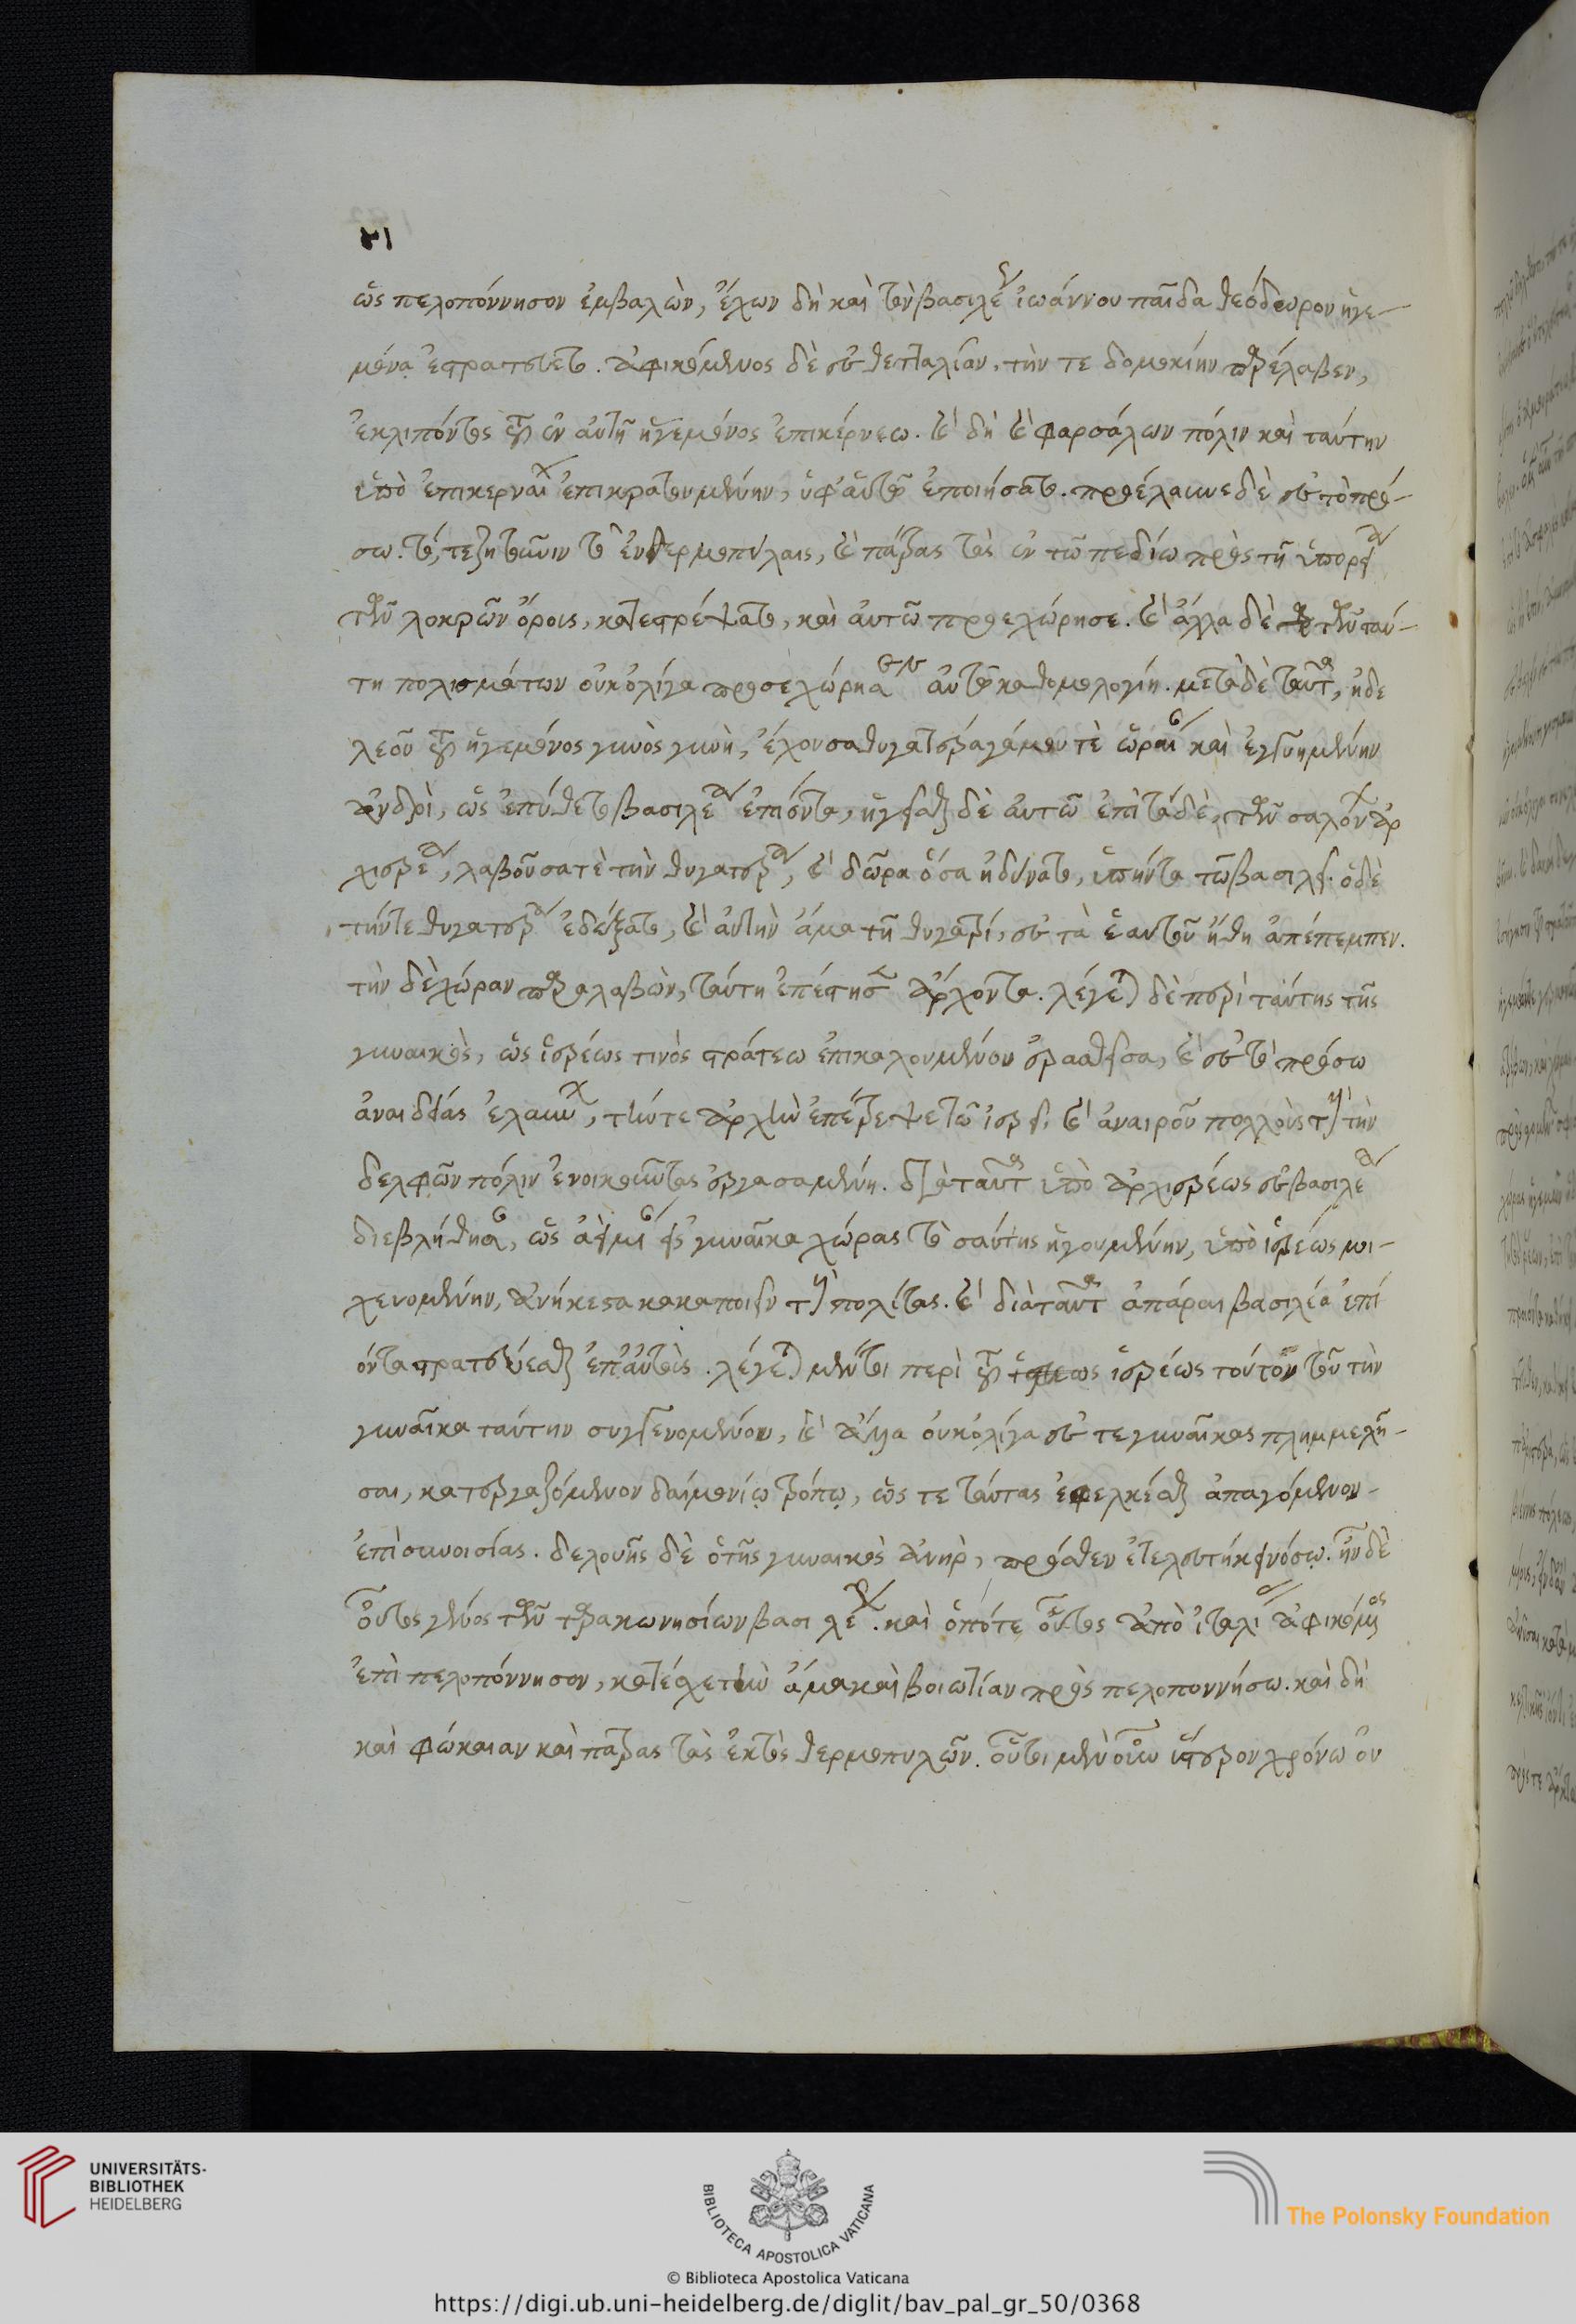 ὡς πελοπόννησον ἐμβαλὼν, ἔχων δὴ καὶ τὸν βασιλέως ἰωάννου παῖδα θεόδωρον ἡγε-
μόνα ἐστρατεύετο. ἀφικόμενος δὲ ἐς θετταλίαν, τήν τε δομοκίην παρέλαβεν,
ἐκλιπόντος τοῦ ἐν αὐτῇ ἡγεμόνος ἐπικέρνεω. καὶ δὴ καὶ φαρσάλων πόλιν καὶ ταύτην
ὑπὸ ἐπικερναίων ἐπικρατουμένην, ὑφ' αὑτῷ ἐποιήσατο. προέλαυνε δὲ ἐς τὸ πρό-
σω. τό, τε ζητοῦνιν τὸ ἐν θερμοπύλαις, καὶ πάτρας τὰς ἐν τῷ πεδίῳ πρὸς τῇ ὑπωρείᾳ
τῶν λοκρῶν ὄροις, κατεστρέψατο, καὶ αὐτῷ προσεχώρησε. καὶ ἄλλα δὲ τῶν ταύ-
τῃ πολισμάτων οὐκ ὀλίγα προσεχώρησαν αὐτῷ καθ' ὁμολογίην. μετὰ δὲ ταῦτα, ἡ δε
λεοῦ τοῦ ἡγεμόνος γυνὸς γυνὴ, ἔχουσα θυγατέρα γάμου τὲ ὡραίαν καὶ ἐγγυημένην
ἀνδρὶ, ὡς ἐπύθετο βασιλέα ἐπιόντα, ἡγεῖσθαι δὲ αὐτῷ ἐπὶ τάδε, τῶν σαλόνων ἀρ
χιερέα, λαβοῦσα τὲ τὴν θυγατέρα, καὶ δῶρα ὅσα ἠδύνατο, ὑπήντα τῷ βασιλεῖ. ὁ δὲ
τήν τε θυγατέρα ἐδέξατο, καὶ αὐτὴν ἅμα τῇ θυγατρί, ἐς τὰ ἑαυτοῦ ἤθη ἀπέπεμπεν.
τὴν δὲ χώραν παραλαβὼν, ταύτῃ ἐπέστησεν ἄρχοντα. λέγεται δὲ περὶ ταύτης τῆς
γυναικὸς, ὡς ἱερέως τινὸς στράτεω ἐπικαλουμένου ἐρασθεῖσα, καὶ ἐς τὸ πρόσω
ἀναιδείας ἐλαύνων, τήν τε ἀρχὴν ἐπέτρεψε τῷ ἱερεῖ, καὶ ἀναιροῦ πολλοὺς τῶν τὴν
δελφῶν πόλιν ἐνοικούντας ἐργασαμένη. διὰ ταῦτα ὑπὸ ἀρχιερέως ἐς βασιλέα
διεβλήθησαν, ὡς γυναῖκα χώρας τοσαύτης ἡγουμένην, ὑπὸ ἱερέως μοι-
χευομένην, ἀνήκεστα κακὰ ποιεῖν τοὺς πολίτας. καὶ διὰ ταῦτα ἀπάραι βασιλέα ἐπι
όντα στρατεύεσθαι ἐπ' αὐτούς. λέγεται μέντοι περὶ τοῦ ἱερέως τούτου τοῦ τὴν
γυναῖκα ταύτην συγγενομένου, καὶ ἄλλα οὐκ ὀλίγα ἐς τε γυναῖκας πλημμελῆ-
σαι, κατεργαζόμενον δαιμονίῳ τρόπῳ, ὥς τε ταύτας ἐφελκέσθαι ἀπαγόμενον
ἐπὶ συνουσίας. δελουῆς δὲ ὁ τῆς γυναικὸς ἀνὴρ, πρόσθεν ἐτελευτήκει νόσῳ. ἦν δὲ
οὗτος γένος τῶν ταρακωνησίων βασιλέων. καὶ ὁπότε οὗτος ἀπὸ ἰταλίας ἀφικόμενος
ἐπὶ πελοπόννησον, κατέσχε τὴν ἅμα καὶ βοιωτίαν πρὸς πελοποννήσω. καὶ δὴ
καὶ φώκαιαν καὶ πάτρας τὰς ἐκτὸς θερμοπυλῶν. οὗτοι μὲν οὖν ὕστερον χρόνω οὐ
UNIVERSITÄTS-
BIBLIOTHEK
HEIDELBERG
BIBLIOTECA APOSTOLICA VATICANA
© Biblioteca Apostolica Vaticana
The Polonsky Foundation
https://digi.ub.uni-heidelberg.de/diglit/bav_pal_gr_50/0368